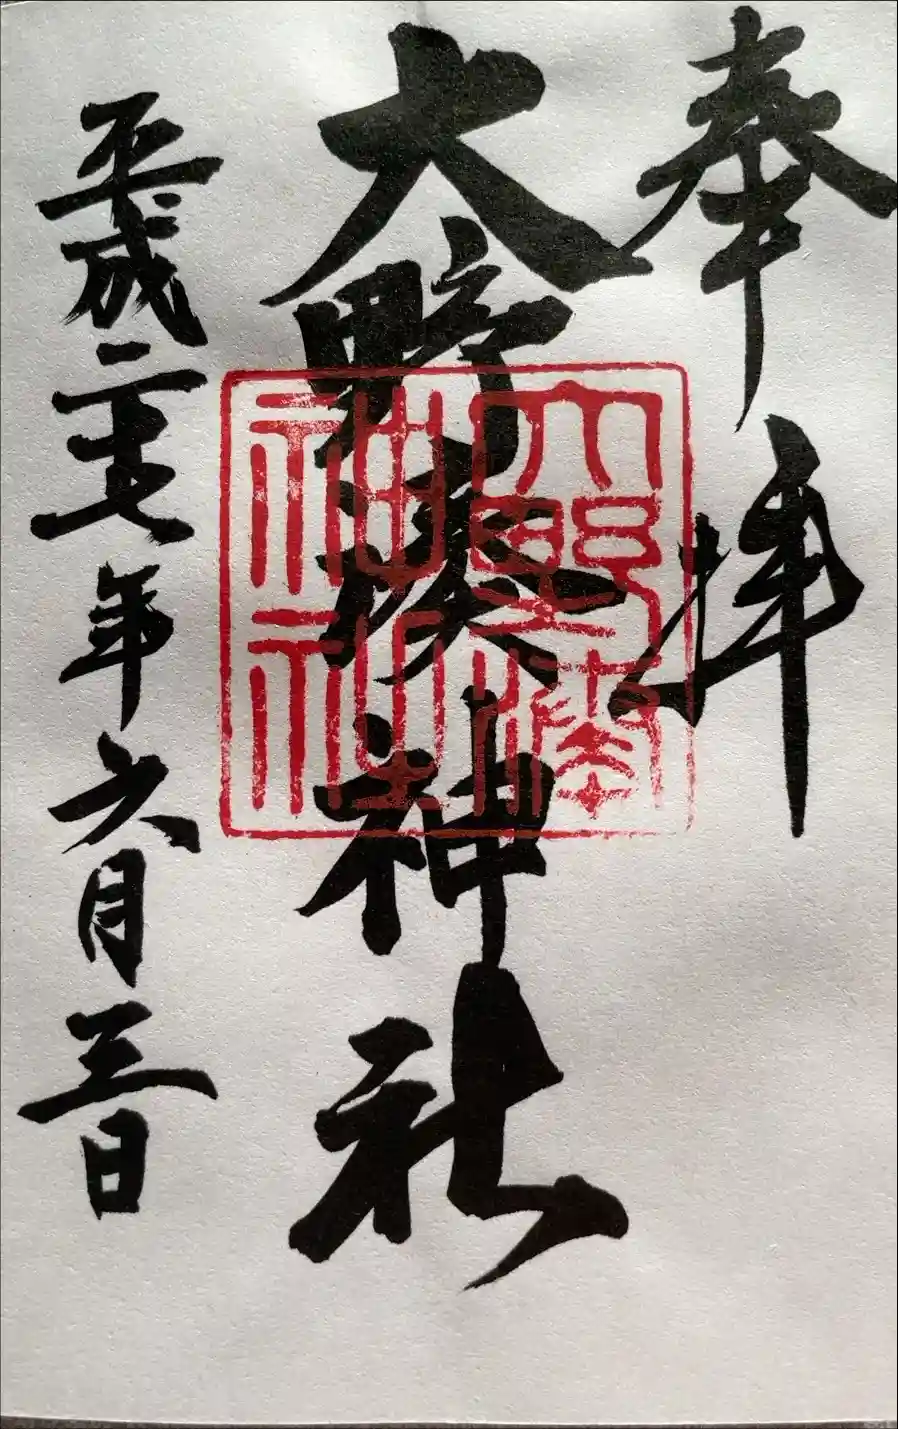 奉拝
大野湊神社
平成二十七年六月三日
大野湊
神社